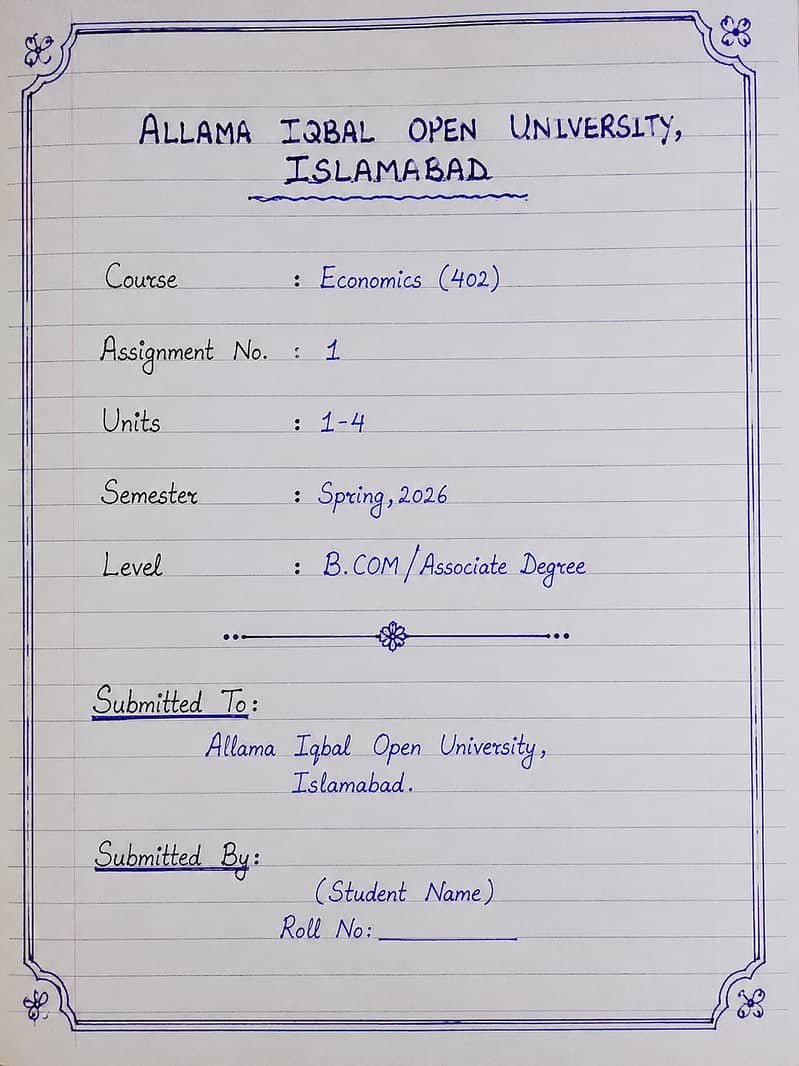 ALLAMA IQBAL OPEN UNIVERSITY,
ISLAMABAD
Course : Economics (402)
Assignment No. : 1
Units : 1-4
Semester : Spring, 2026
Level : B.COM/Associate Degree
Submitted To:
Allama Iqbal Open University,
Islamabad.
Submitted By:
(Student Name)
Roll No: __________